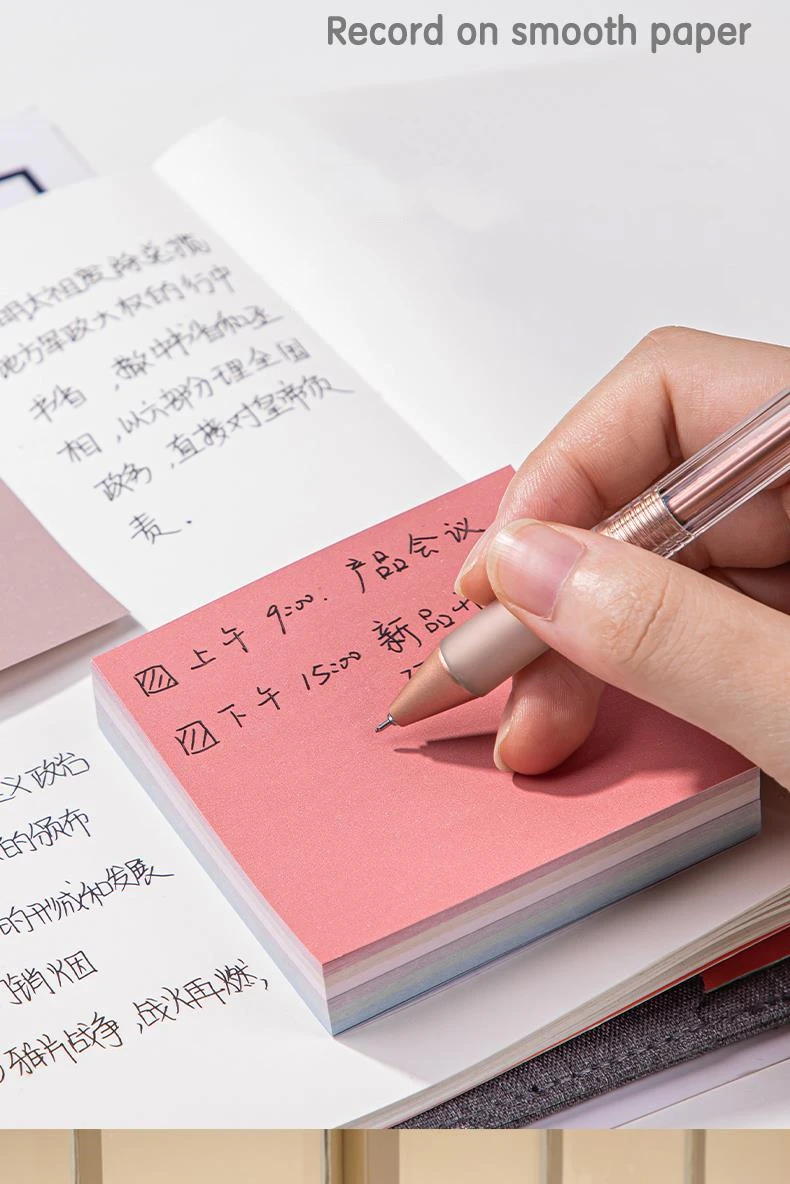 Record on smooth paper
明太祖废除总揽
地方军政大权的行中
书省，撤中书省和丞
相，以六部分理全国
政务，直接对皇帝负
责.
上午 9:00. 产品会议
下午 15:00 新品
义政治
的颁布
的形成和发展
销烟
鸦片战争，战火再燃，